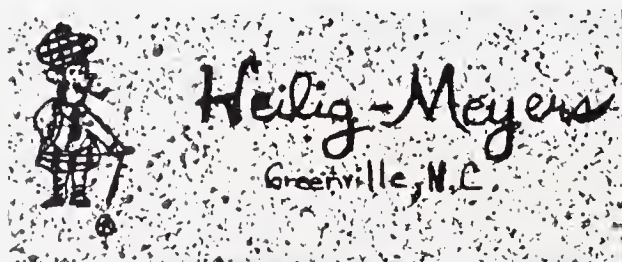 Heilig-Meyers
Greenville, N.C.